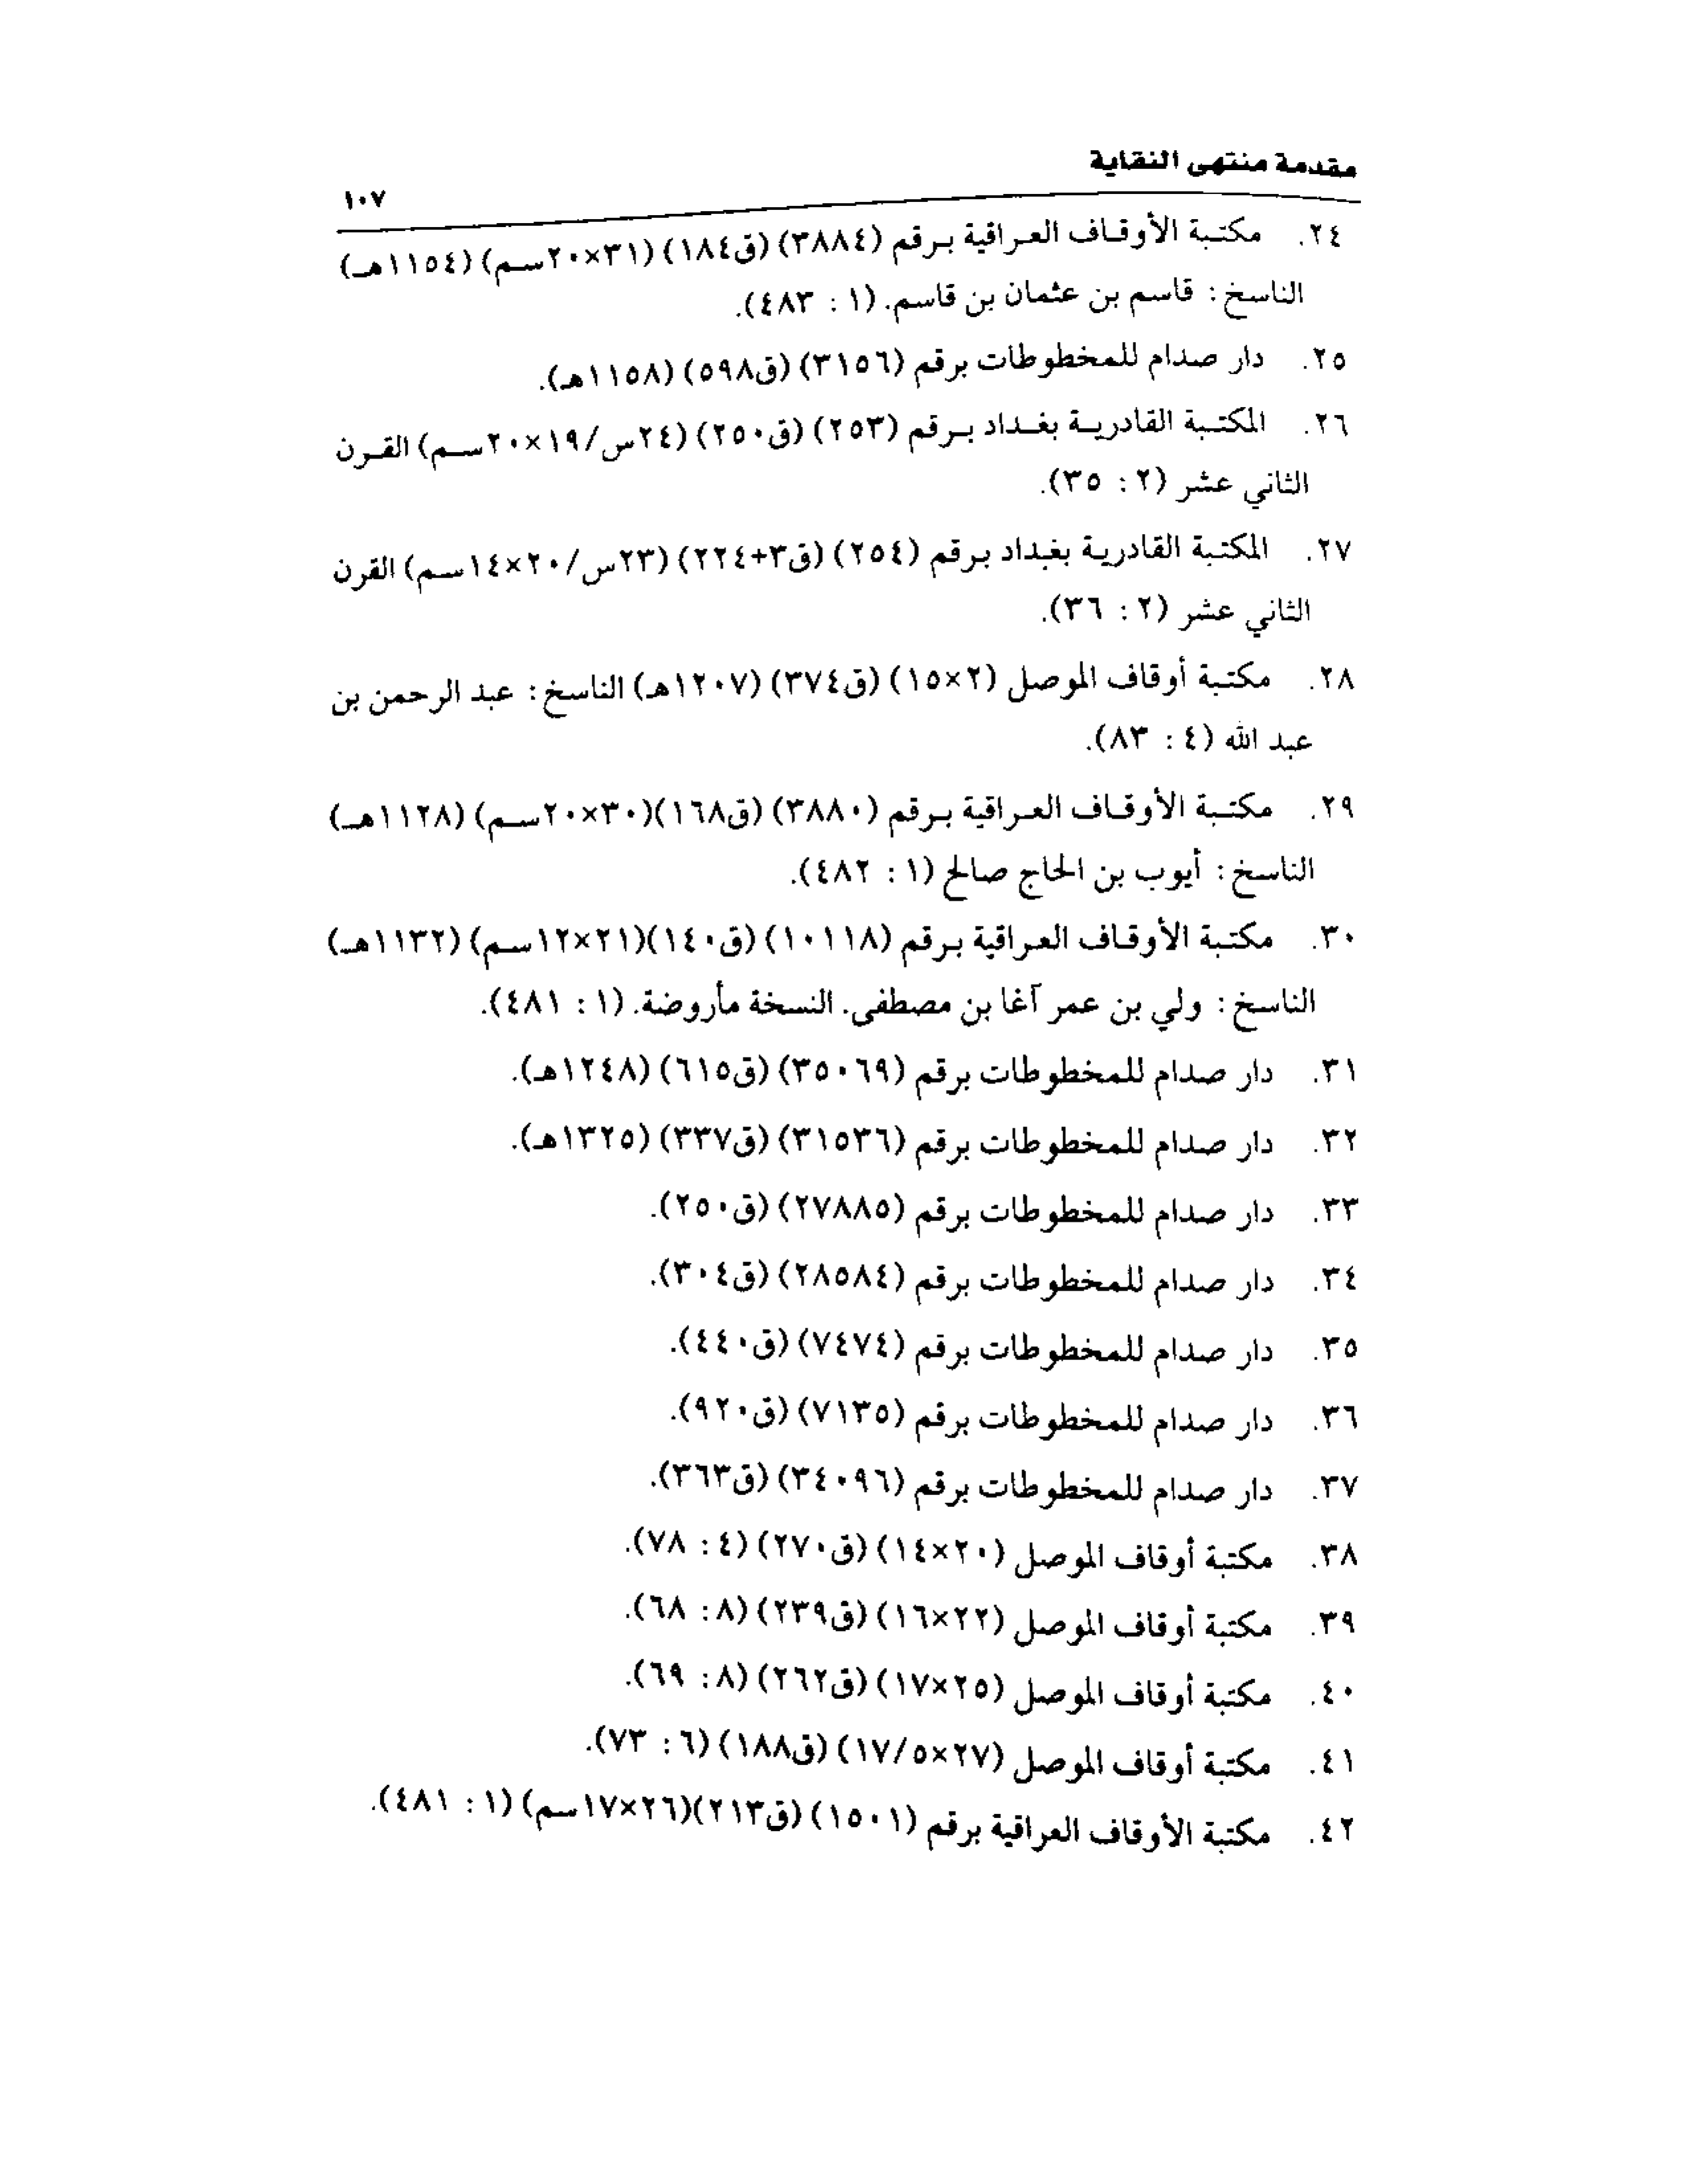 مقدمة منتهى النقاية
١٠٧
٢٤. مكتبة الأوقاف العراقية برقم (٣٨٨٤) (ق١٨٤) (٣١×٢٠سم) (١١٥٤هـ)
الناسخ: قاسم بن عثمان بن قاسم. (١ : ٤٨٣).
٢٥. دار صدام للمخطوطات برقم (٣١٥٦) (ق٥٩٨) (١١٥٨هـ).
٢٦. المكتبة القادرية بغداد برقم (٢٥٣) (ق٢٥٠) (٢٤س/١٩×٢٠سم) القرن
الثاني عشر (٢ : ٣٥).
٢٧. المكتبة القادرية بغداد برقم (٢٥٤) (ق٣+٢٢٤) (٢٣س/٢٠×١٤سم) القرن
الثاني عشر (٢ : ٣٦).
٢٨. مكتبة أوقاف الموصل (٢×١٥) (ق٣٧٤) (١٢٠٧هـ) الناسخ: عبد الرحمن بن
عبد الله (٤ : ٨٣).
٢٩. مكتبة الأوقاف العراقية برقم (٣٨٨٠) (ق١٦٨)(٣٠×٢٠سم) (١١٢٨هـ)
الناسخ: أيوب بن الحاج صالح (١ : ٤٨٢).
٣٠. مكتبة الأوقاف العراقية برقم (١٠١١٨) (ق١٤٠)(٢١×١٢سم) (١١٣٢هـ)
الناسخ: ولي بن عمر آغا بن مصطفى. النسخة مأروضة. (١ : ٤٨١).
٣١. دار صدام للمخطوطات برقم (٣٥٠٦٩) (ق٦١٥) (١٢٤٨هـ).
٣٢. دار صدام للمخطوطات برقم (٣١٥٣٦) (ق٣٣٧) (١٣٢٥هـ).
٣٣. دار صدام للمخطوطات برقم (٢٧٨٨٥) (ق٢٥٠).
٣٤. دار صدام للمخطوطات برقم (٢٨٥٨٤) (ق٣٠٤).
٣٥. دار صدام للمخطوطات برقم (٧٤٧٤) (ق٤٤٠).
٣٦. دار صدام للمخطوطات برقم (٧١٣٥) (ق٩٢٠).
٣٧. دار صدام للمخطوطات برقم (٣٤٠٩٦) (ق٣٦٣).
٣٨. مكتبة أوقاف الموصل (٢٠×١٤) (ق٢٧٠) (٤: ٧٨).
٣٩. مكتبة أوقاف الموصل (٢٢×١٦) (ق٢٣٩) (٨: ٦٨).
٤٠. مكتبة أوقاف الموصل (٢٥×١٧) (ق٢٦٢) (٨: ٦٩).
٤١. مكتبة أوقاف الموصل (٢٧×١٧/٥) (ق١٨٨) (٦: ٧٣).
٤٢. مكتبة الأوقاف العراقية برقم (١٥٠١) (ق٢١٣)(٢٦×١٧سم) (١: ٤٨١).